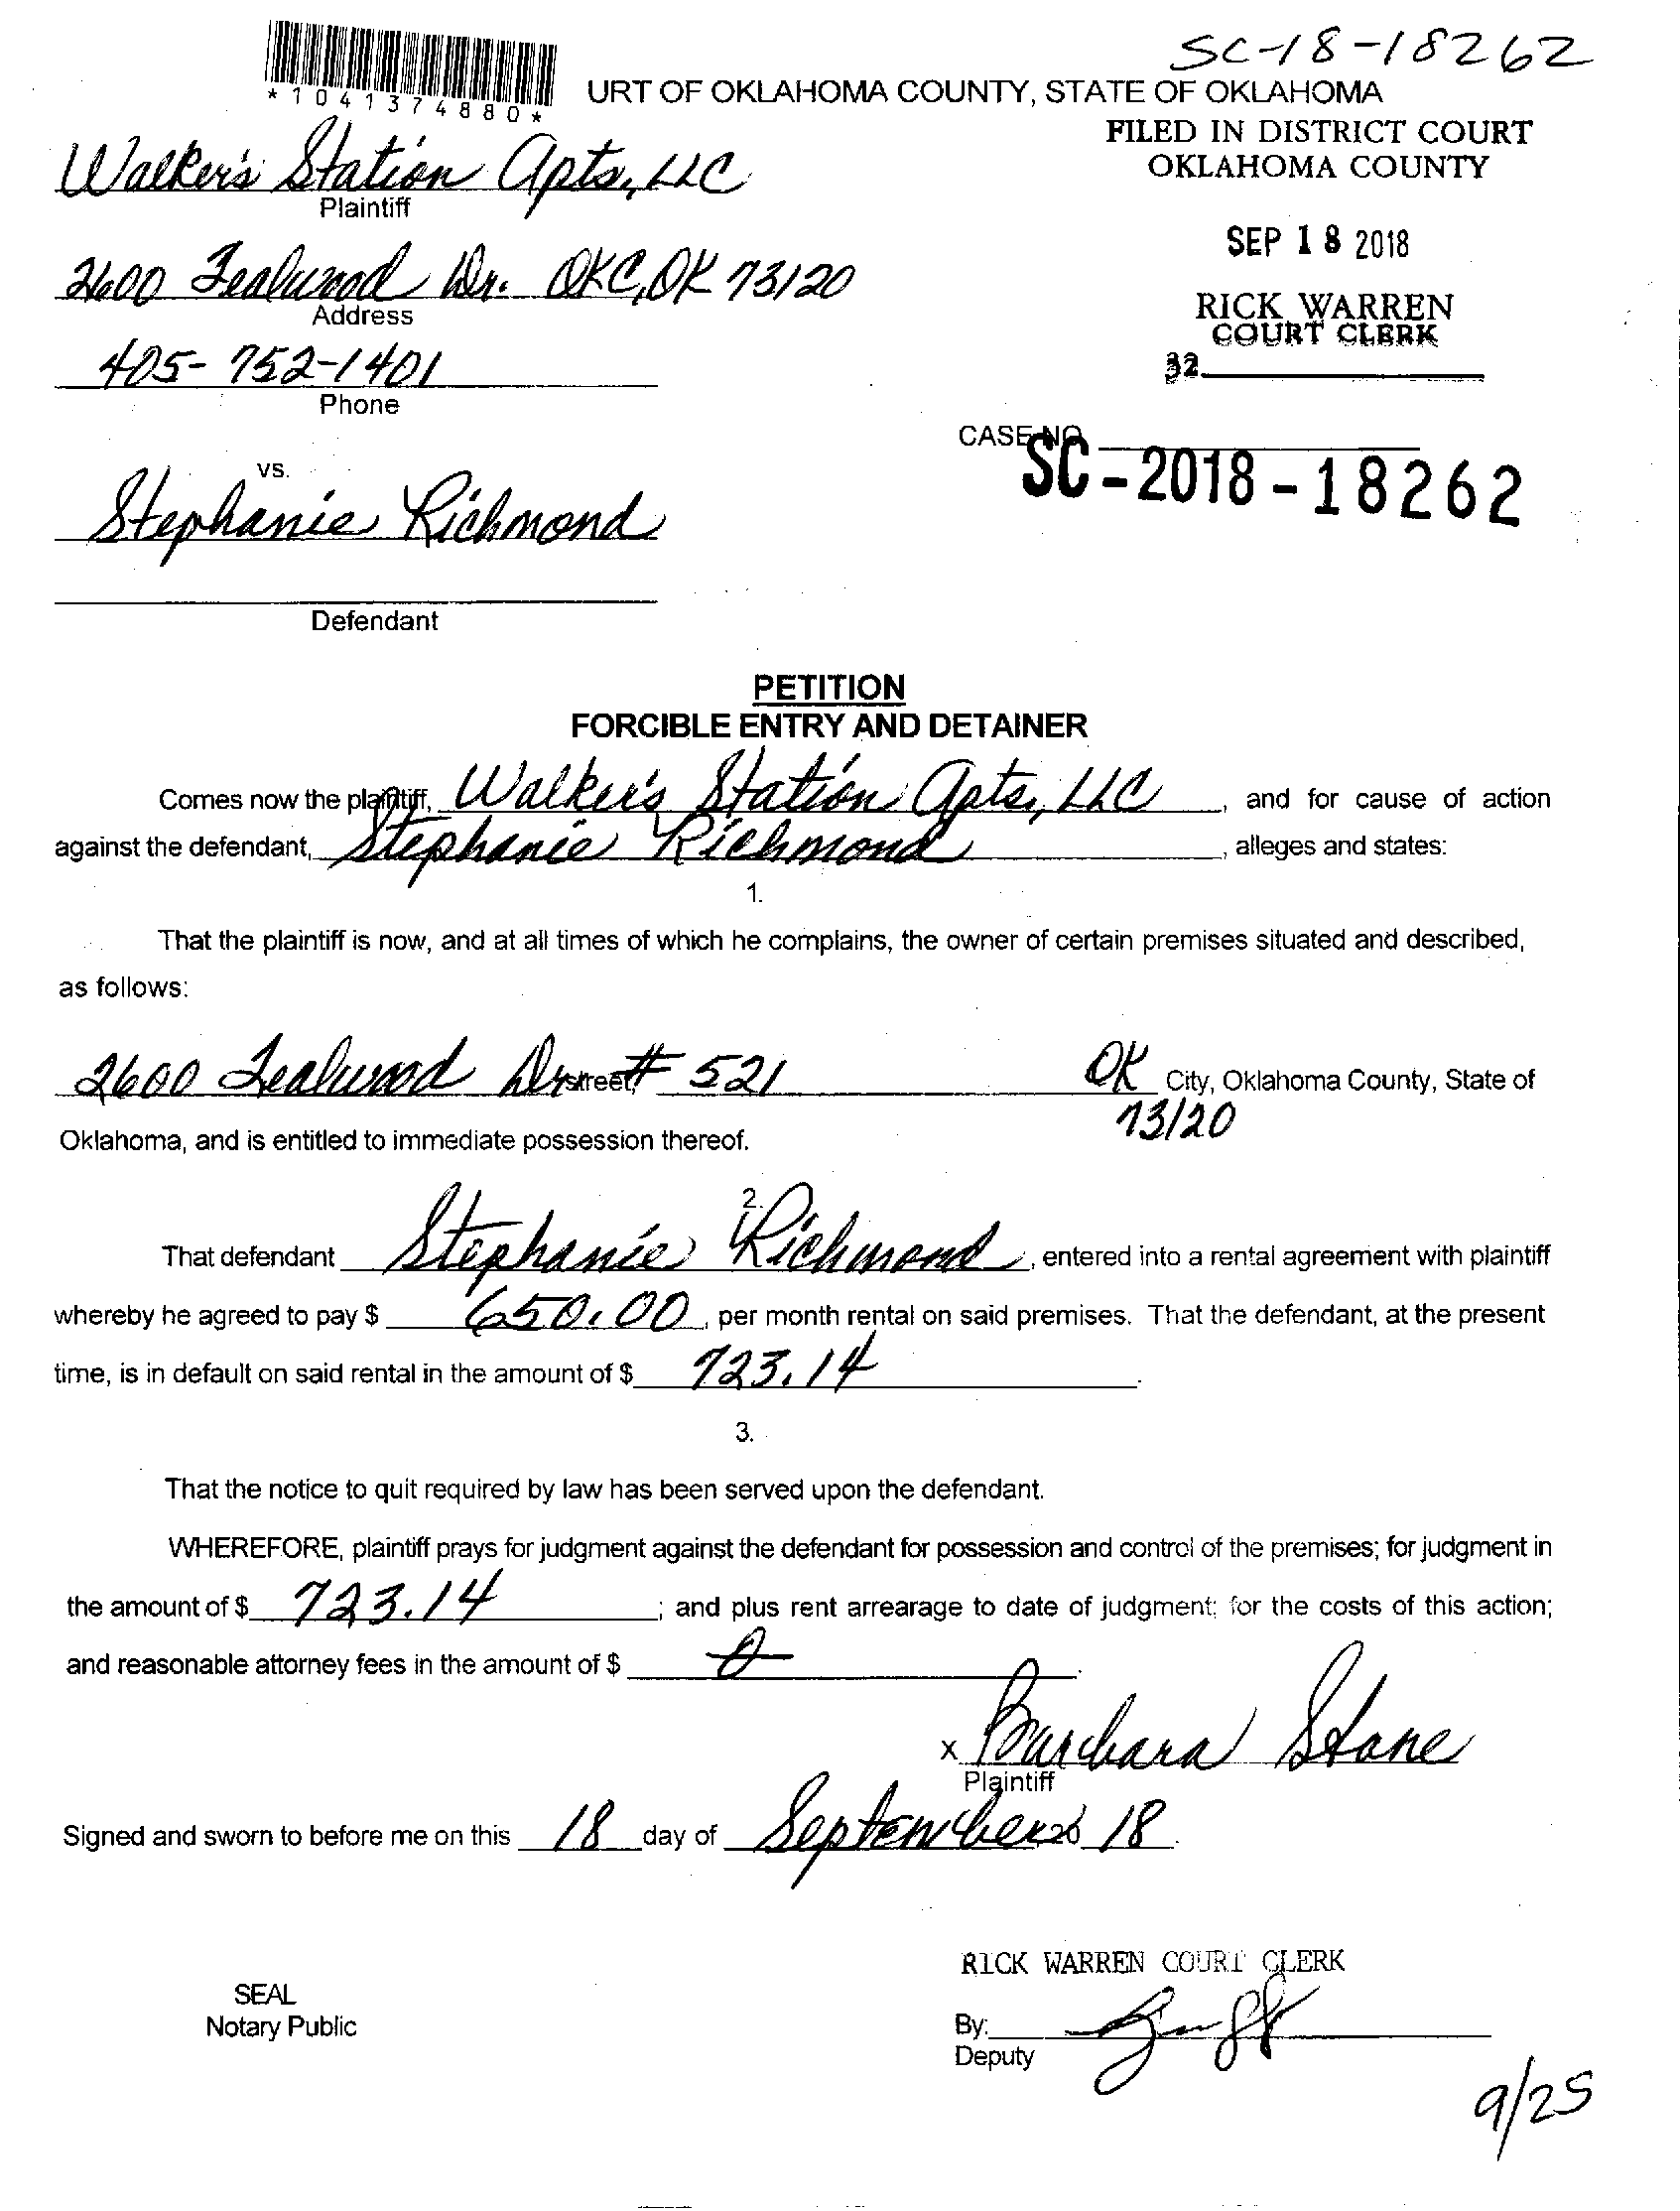 SC-18-18262
*1041374880*
URT OF OKLAHOMA COUNTY, STATE OF OKLAHOMA
FILED IN DISTRICT COURT
OKLAHOMA COUNTY
Walker's Station Apts, LLC
Plaintiff
SEP 18 2018
2600 Tealwood Dr. OKC, OK 73120
Address
RICK WARREN
COURT CLERK
32
405-752-1401
Phone
CASE NO.
SC-2018-18262
vs.
Stephanie Richmond
Defendant
PETITION
FORCIBLE ENTRY AND DETAINER
Comes now the plaintiff, Walker's Station Apts, LLC, and for cause of action
against the defendant, Stephanie Richmond, alleges and states:
1.
That the plaintiff is now, and at all times of which he complains, the owner of certain premises situated and described,
as follows:
2600 Tealwood Dr street, # 521 OK City, Oklahoma County, State of
73120
Oklahoma, and is entitled to immediate possession thereof.
2.
That defendant Stephanie Richmond, entered into a rental agreement with plaintiff
whereby he agreed to pay $ 650.00, per month rental on said premises. That the defendant, at the present
time, is in default on said rental in the amount of $ 723.14.
3.
That the notice to quit required by law has been served upon the defendant.
WHEREFORE, plaintiff prays for judgment against the defendant for possession and control of the premises; for judgment in
the amount of $ 723.14; and plus rent arrearage to date of judgment; for the costs of this action;
and reasonable attorney fees in the amount of $ 0.
x Barbara Stone
Plaintiff
Signed and sworn to before me on this 18 day of September 18.
RICK WARREN COURT CLERK
SEAL
Notary Public
By:
Deputy
9/25